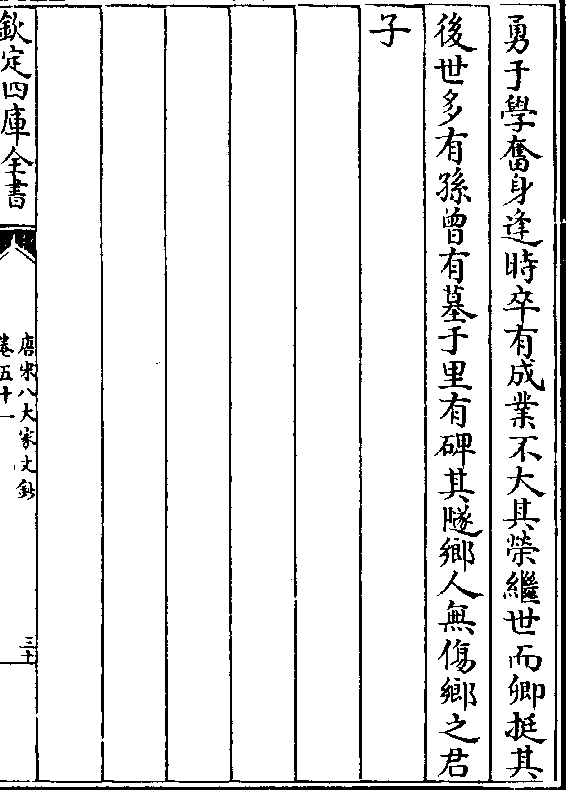 勇于學奮身逢時卒有成業不大其榮繼世而卿挺其
後世多有孫曾有墓于里有碑其隧鄉人無傷鄉之君
子
欽定四庫全書
唐宋八大家文鈔
卷五十一
三十